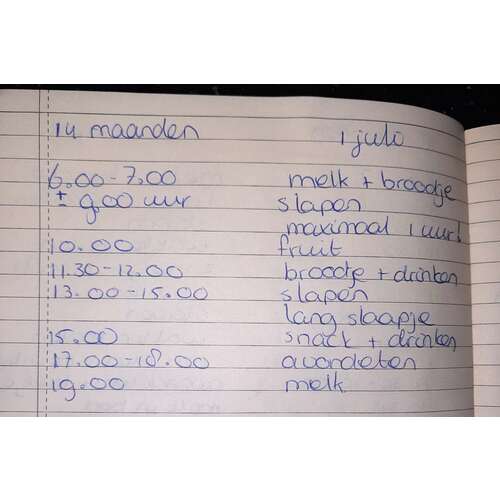 14 maanden 1 julo
6.00-7.00 melk + broodje
± 9.00 uur slapen
maximaal 1 uur!
10.00 fruit
11.30-12.00 broodje + drinken
13.00-15.00 slapen
lang slaapje
15.00 snack + drinken
17.00-18.00 avondeten
19.00 melk